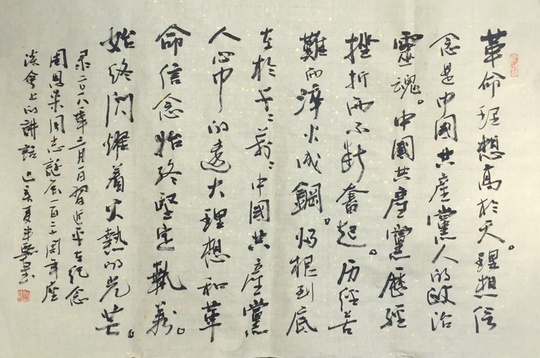 革命理想高於天。理想信
念是中國共產黨人的政治
靈魂。中國共產黨歷經
挫折而不斷奮起。历經苦
難而淬火成鋼。歸根到底
在於千々萬々中國共產黨
人心中的遠大理想和革
命信念始終堅定執着。
始終閃耀着火熱的光芒。
录二〇一八年三月一日習近平在纪念
周恩来同志誕辰一百二十周年座
谈會上的讲話 己亥夏